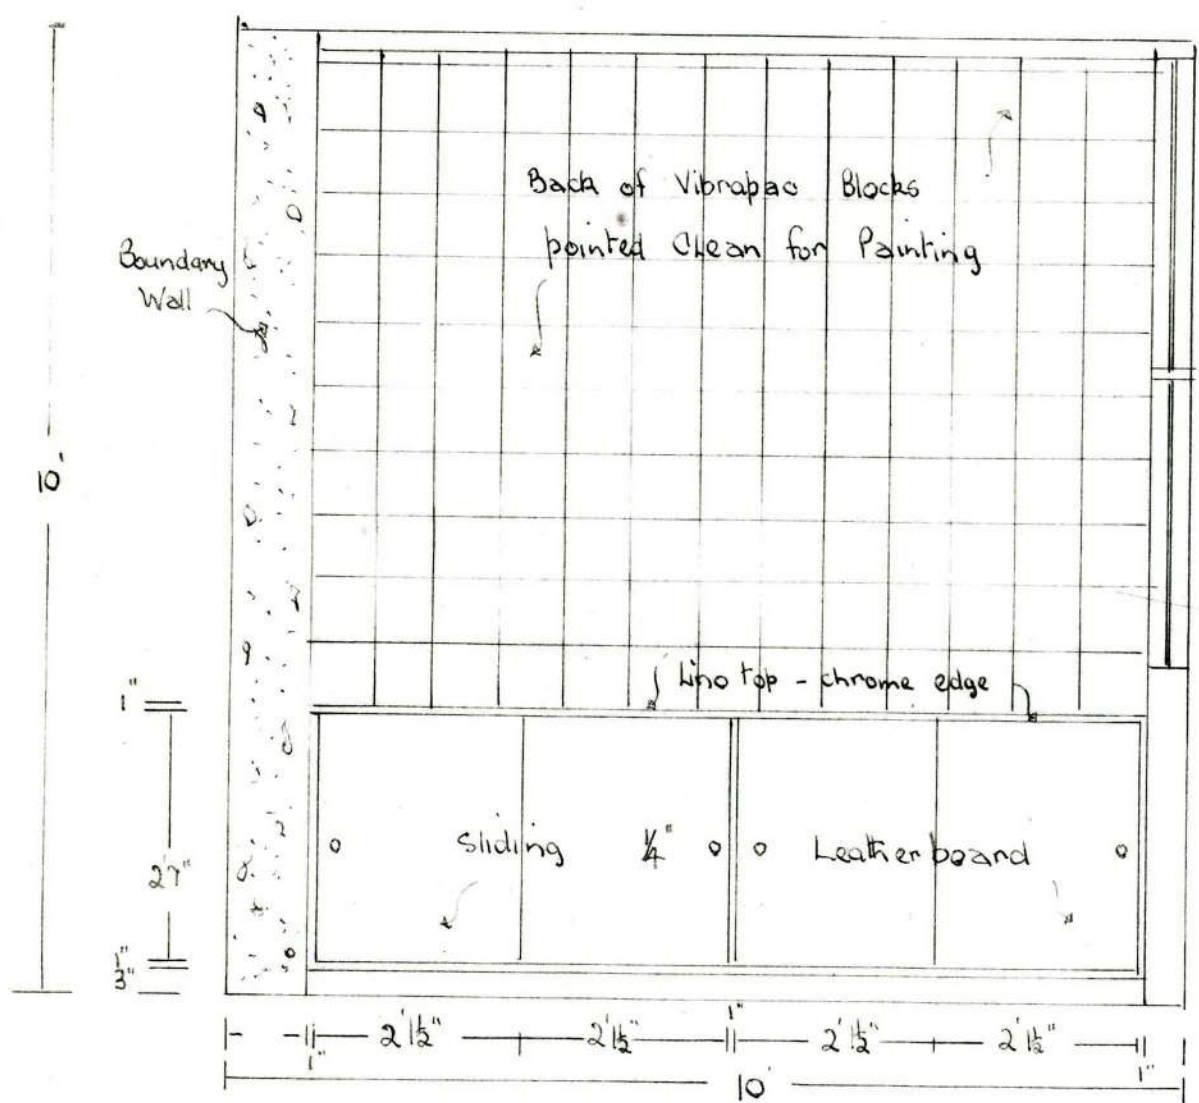 Back of Vibrapac Blocks
pointed Clean for Painting
Boundary
Wall
10'
Lino top - chrome edge
1"
Sliding 1/4" Leatherboard
2'7"
1"
3"
2' 1½" 2' 1½" 1" 2' 1½" 2' 1½"
1" 1"
10'